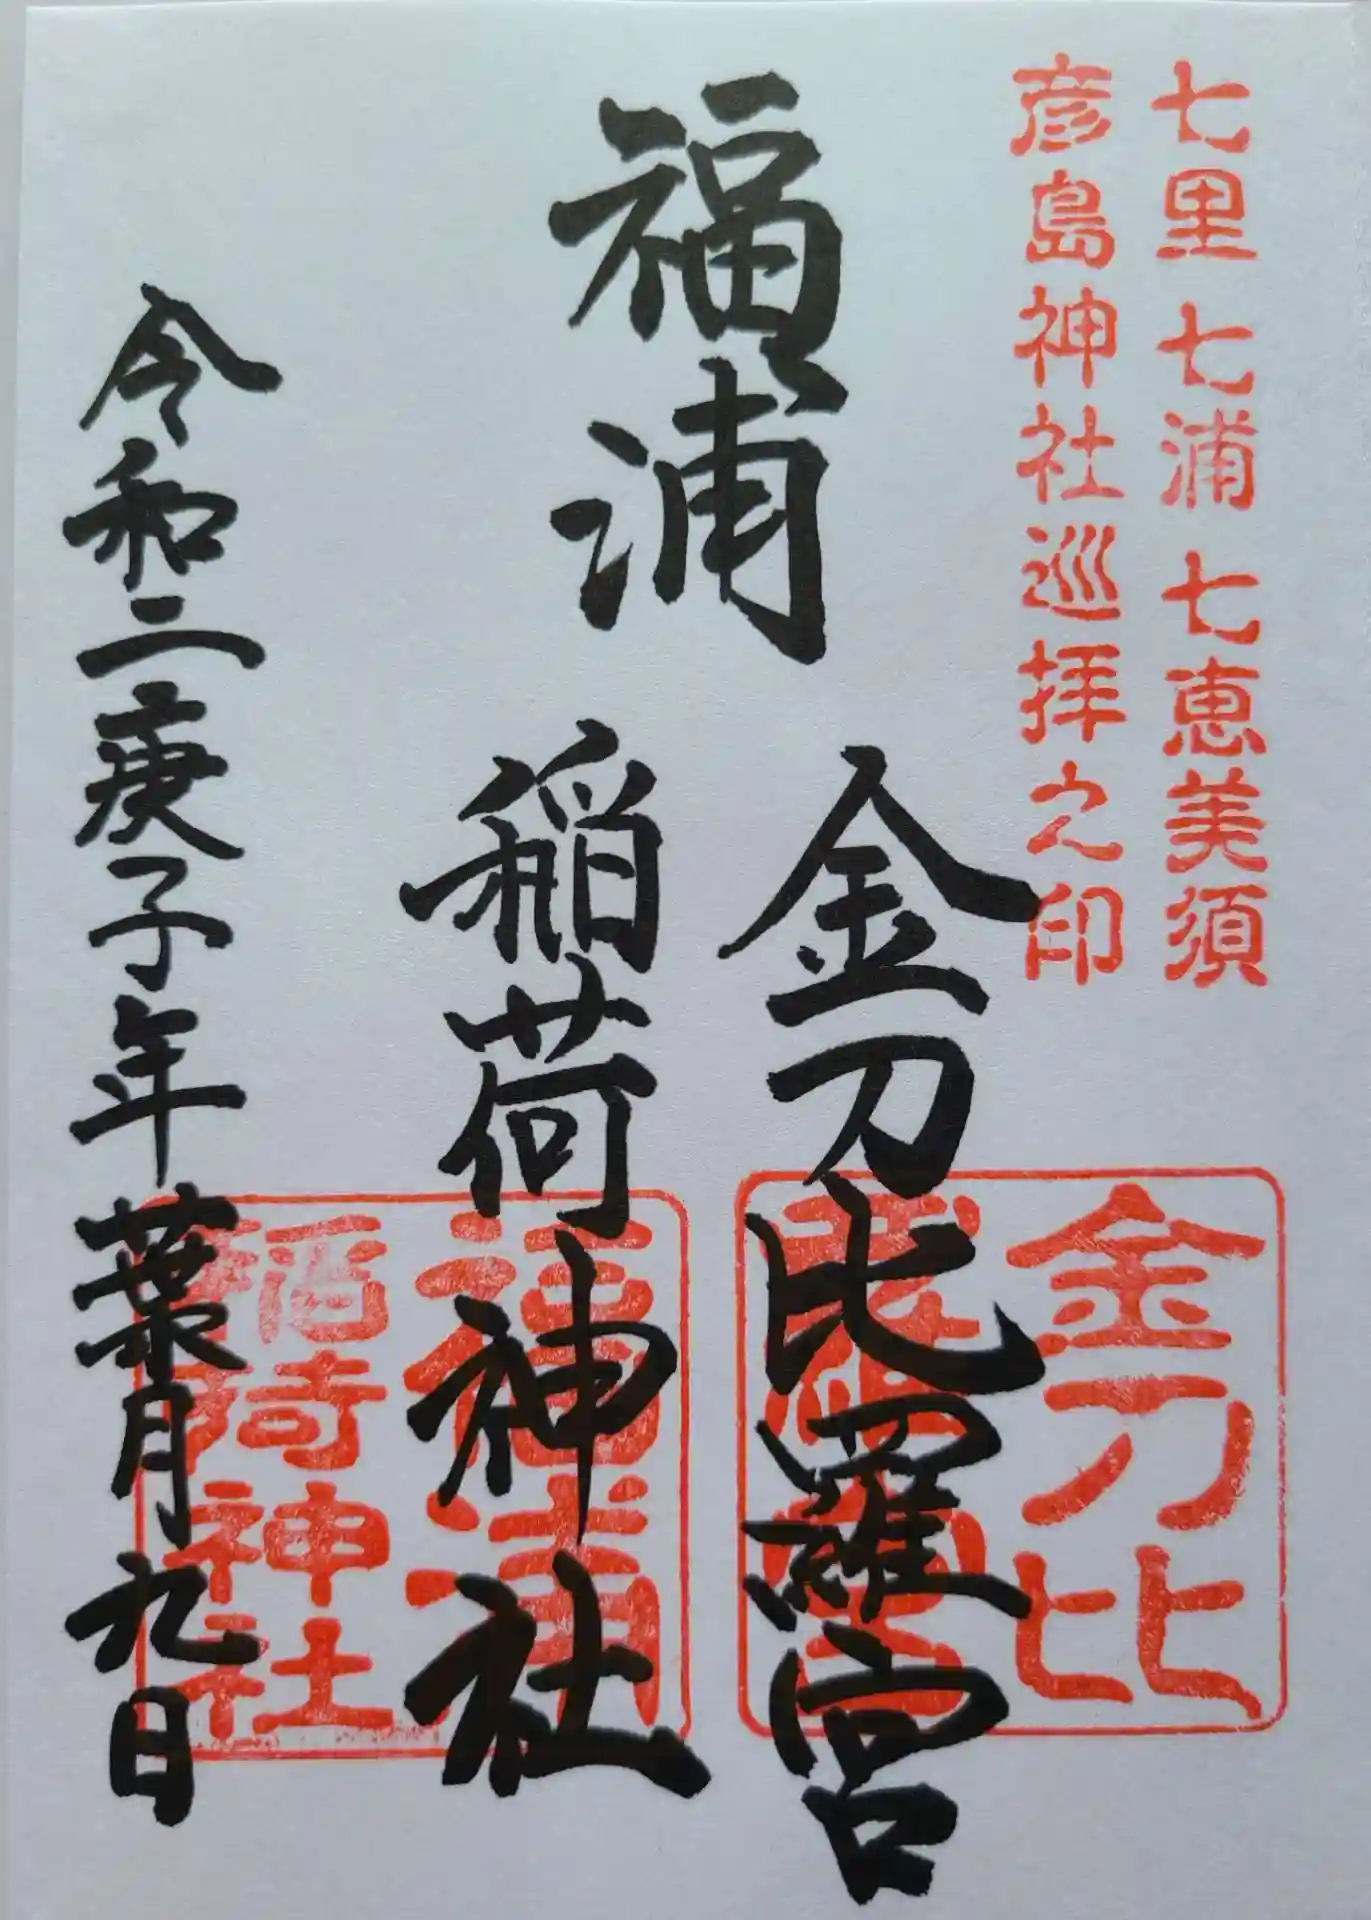 七里 七浦 七恵美須
彦島神社巡拝之印
福浦
金刀比羅宮
稲荷神社
令和二庚子年葉月九日
金刀比
福浦
稲荷神社